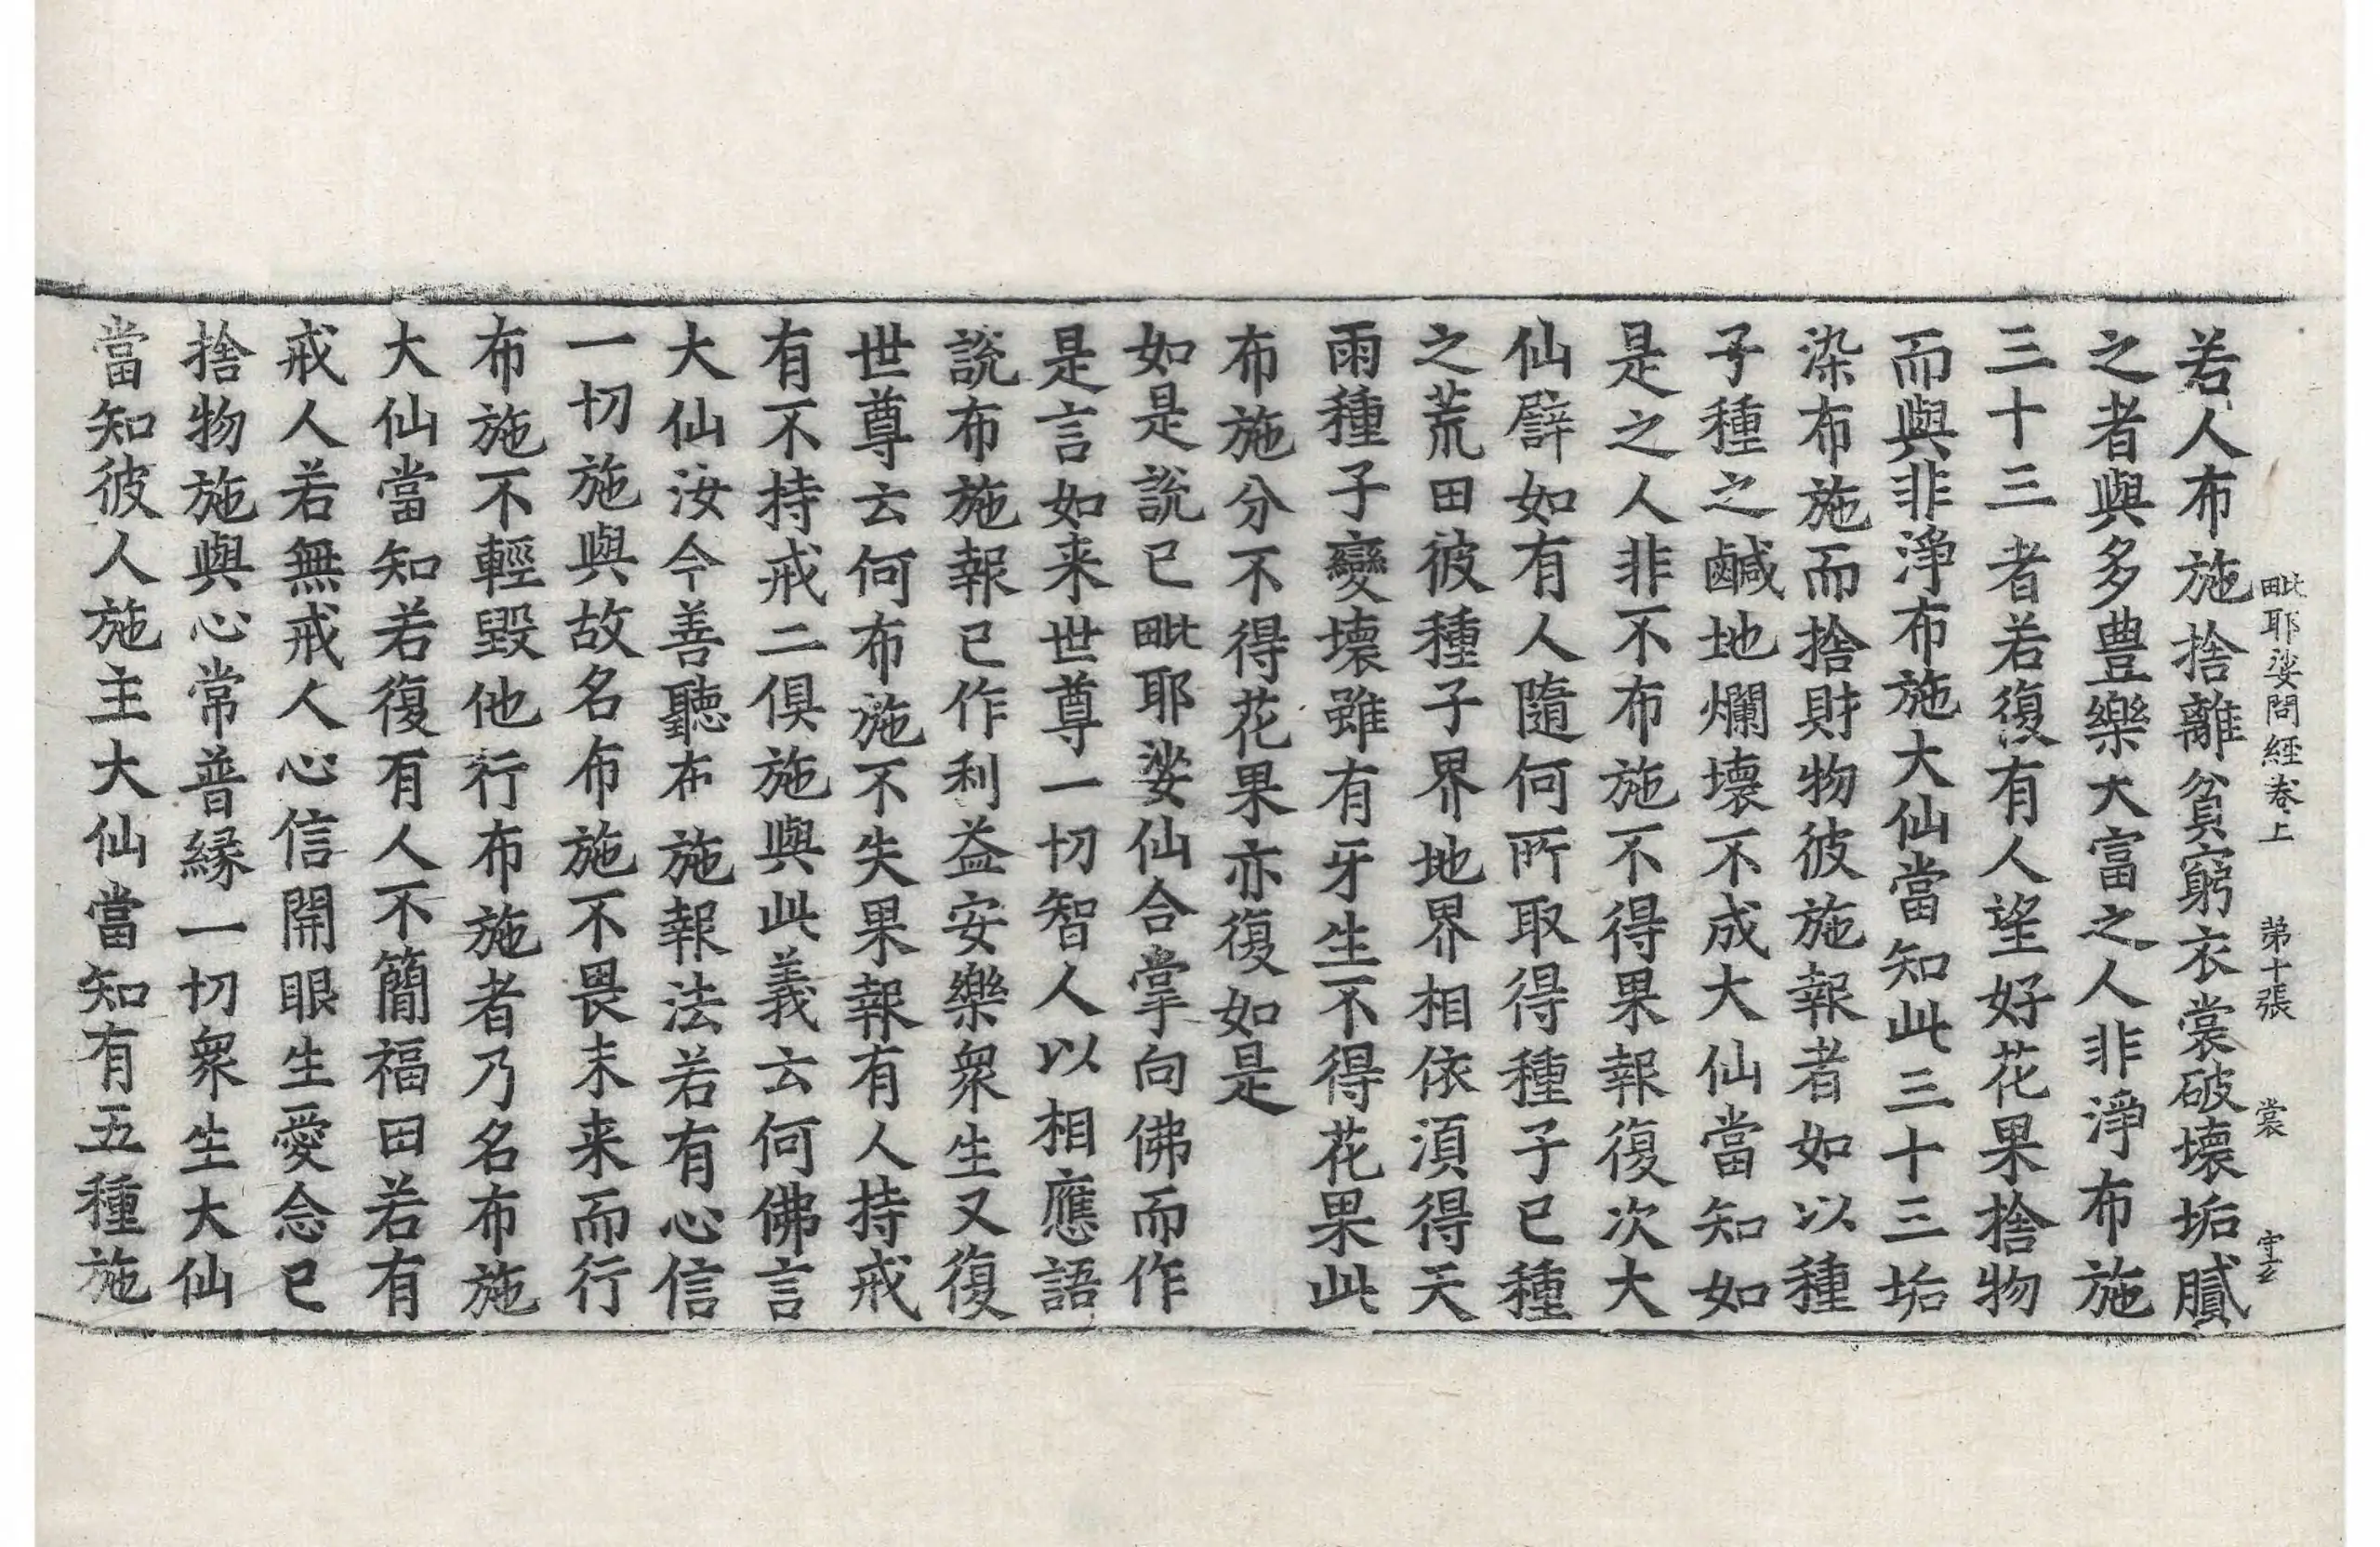 毗耶娑問經卷上　第十張　裳
若人布施捨離貧窮衣裳破壞垢膩
之者與多豊樂大富之人非淨布施
三十三者若復有人望好花果捨物
而與非淨布施大仙當知此三十三垢
染布施而捨財物彼施報者如以種
子種之鹹地爛壞不成大仙當知如
是之人非不布施不得果報復次大
仙譬如有人隨何所取得種子已種
之荒田彼種子界地界相依湏得天
雨種子變壞雖有牙生不得花果此
布施分不得花果亦復如是
如是說已毗耶娑仙合掌向佛而作
是言如来世尊一切智人以相應語
說布施報已作利益安樂衆生又復
世尊云何布施不失果報有人持戒
有不持戒二俱施與此義云何佛言
大仙汝今善聽布施報法若有心信
一切施與故名布施不畏未来而行
布施不輕毀他行布施者乃名布施
大仙當知若復有人不簡福田若有
戒人若無戒人心信開眼生愛念已
捨物施與心常普緣一切衆生大仙
當知彼人施主大仙當知有五種施